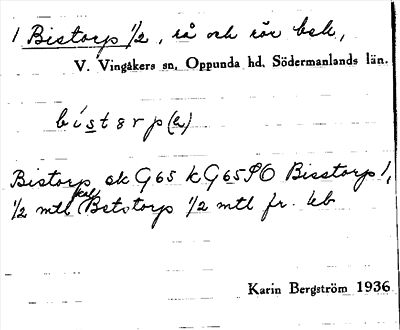 1 Bistorp 1/2, rå och rör bsk,
V. Vingåkers sn, Oppunda hd, Södermanlands län.
bístorp(a)
Bistorp ek G65 k G65 SO Bisstorp 1,
1/2 mtl Betstorp 1/2 mtl fr. kb
Karin Bergström 1936